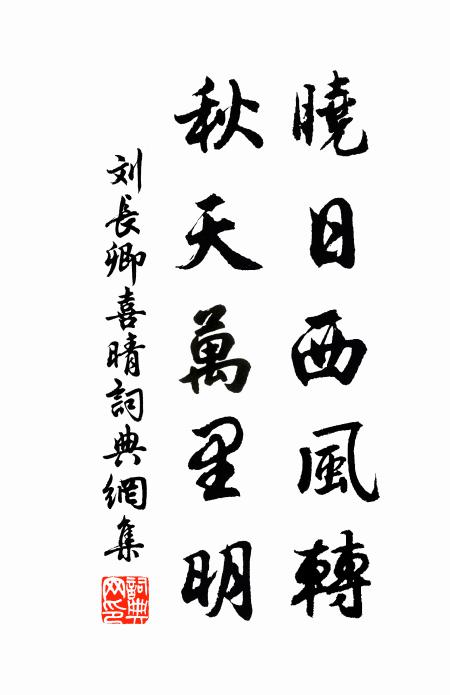 曉日西風轉
秋天萬里明
刘長卿喜晴詞典網集
詞典网印